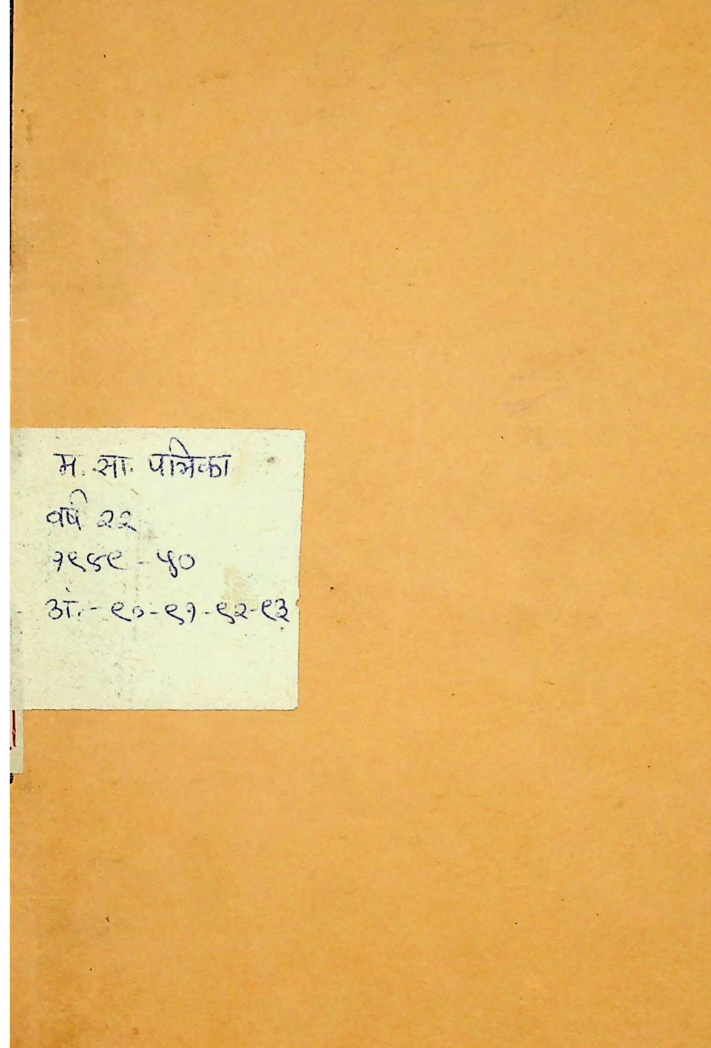 म. सा. पत्रिका
वर्ष २२
१९४९ - ५०
अं. - ९०-९१-९२-९३